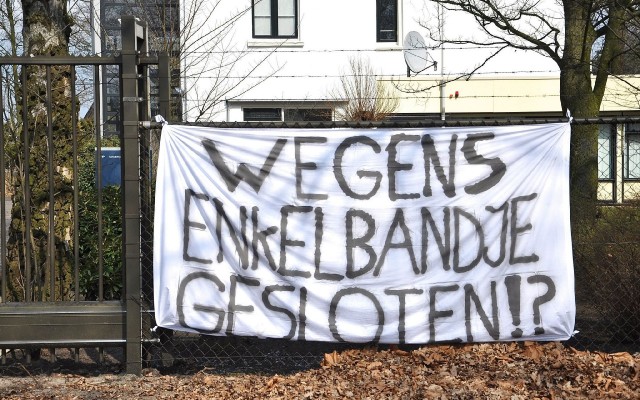 WEGENS
ENKELBANDJE
GESLOTEN!?